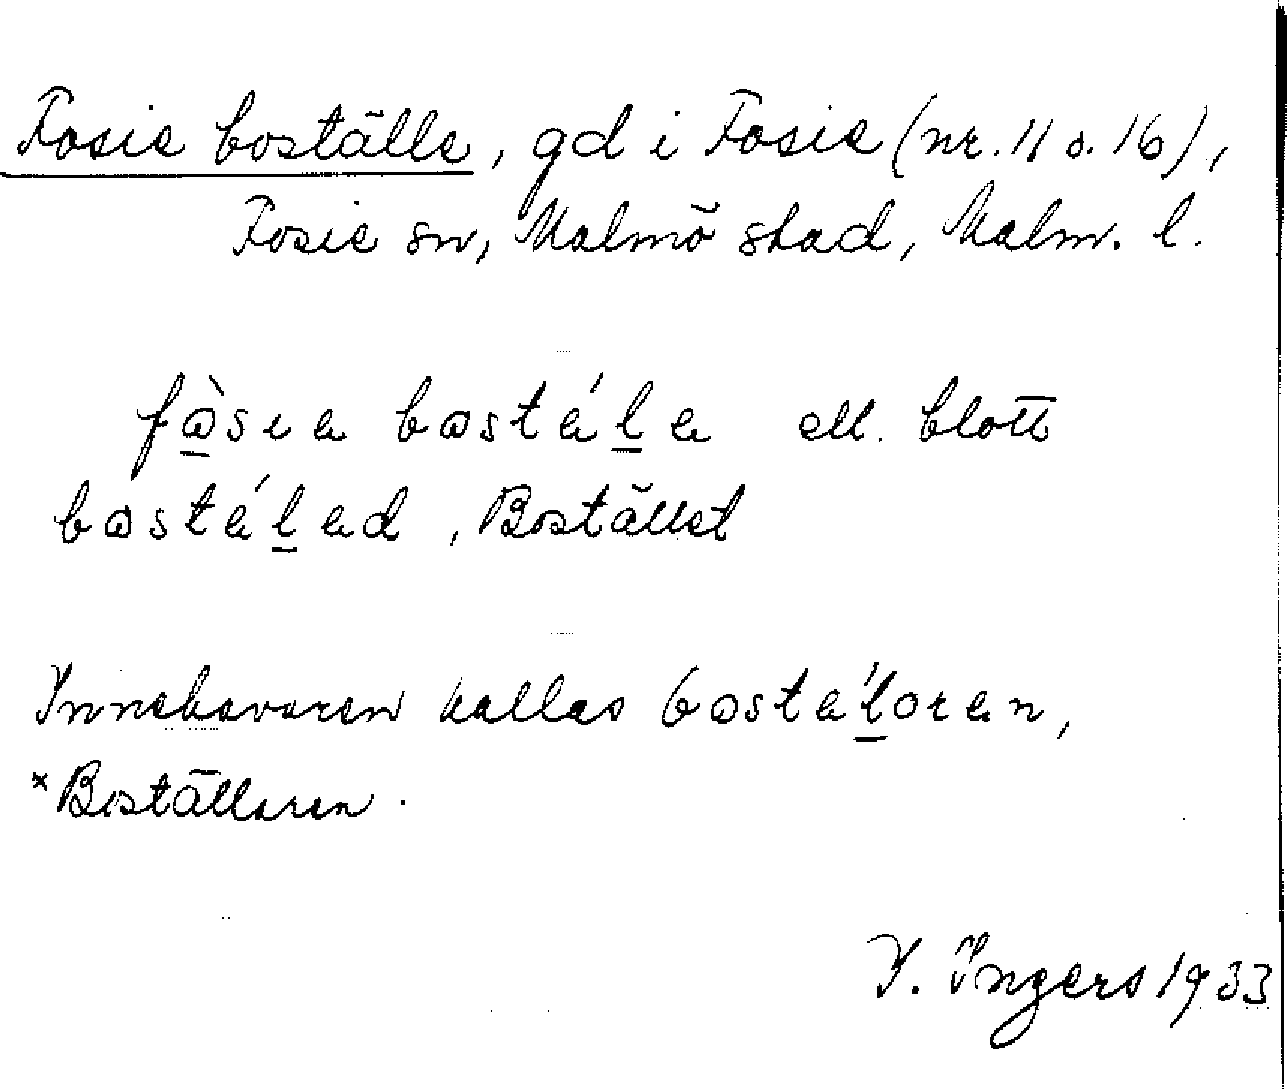 Fosie boställe, gd i Fosie (nr. 11 o. 16),
Fosie sn, Malmö stad, Malm. l.
fòsıe bostéle ell. blott
bostéled, Bostället
Innehavaren kallas bostéloren,
*Boställaren.
I. Ingers 1933